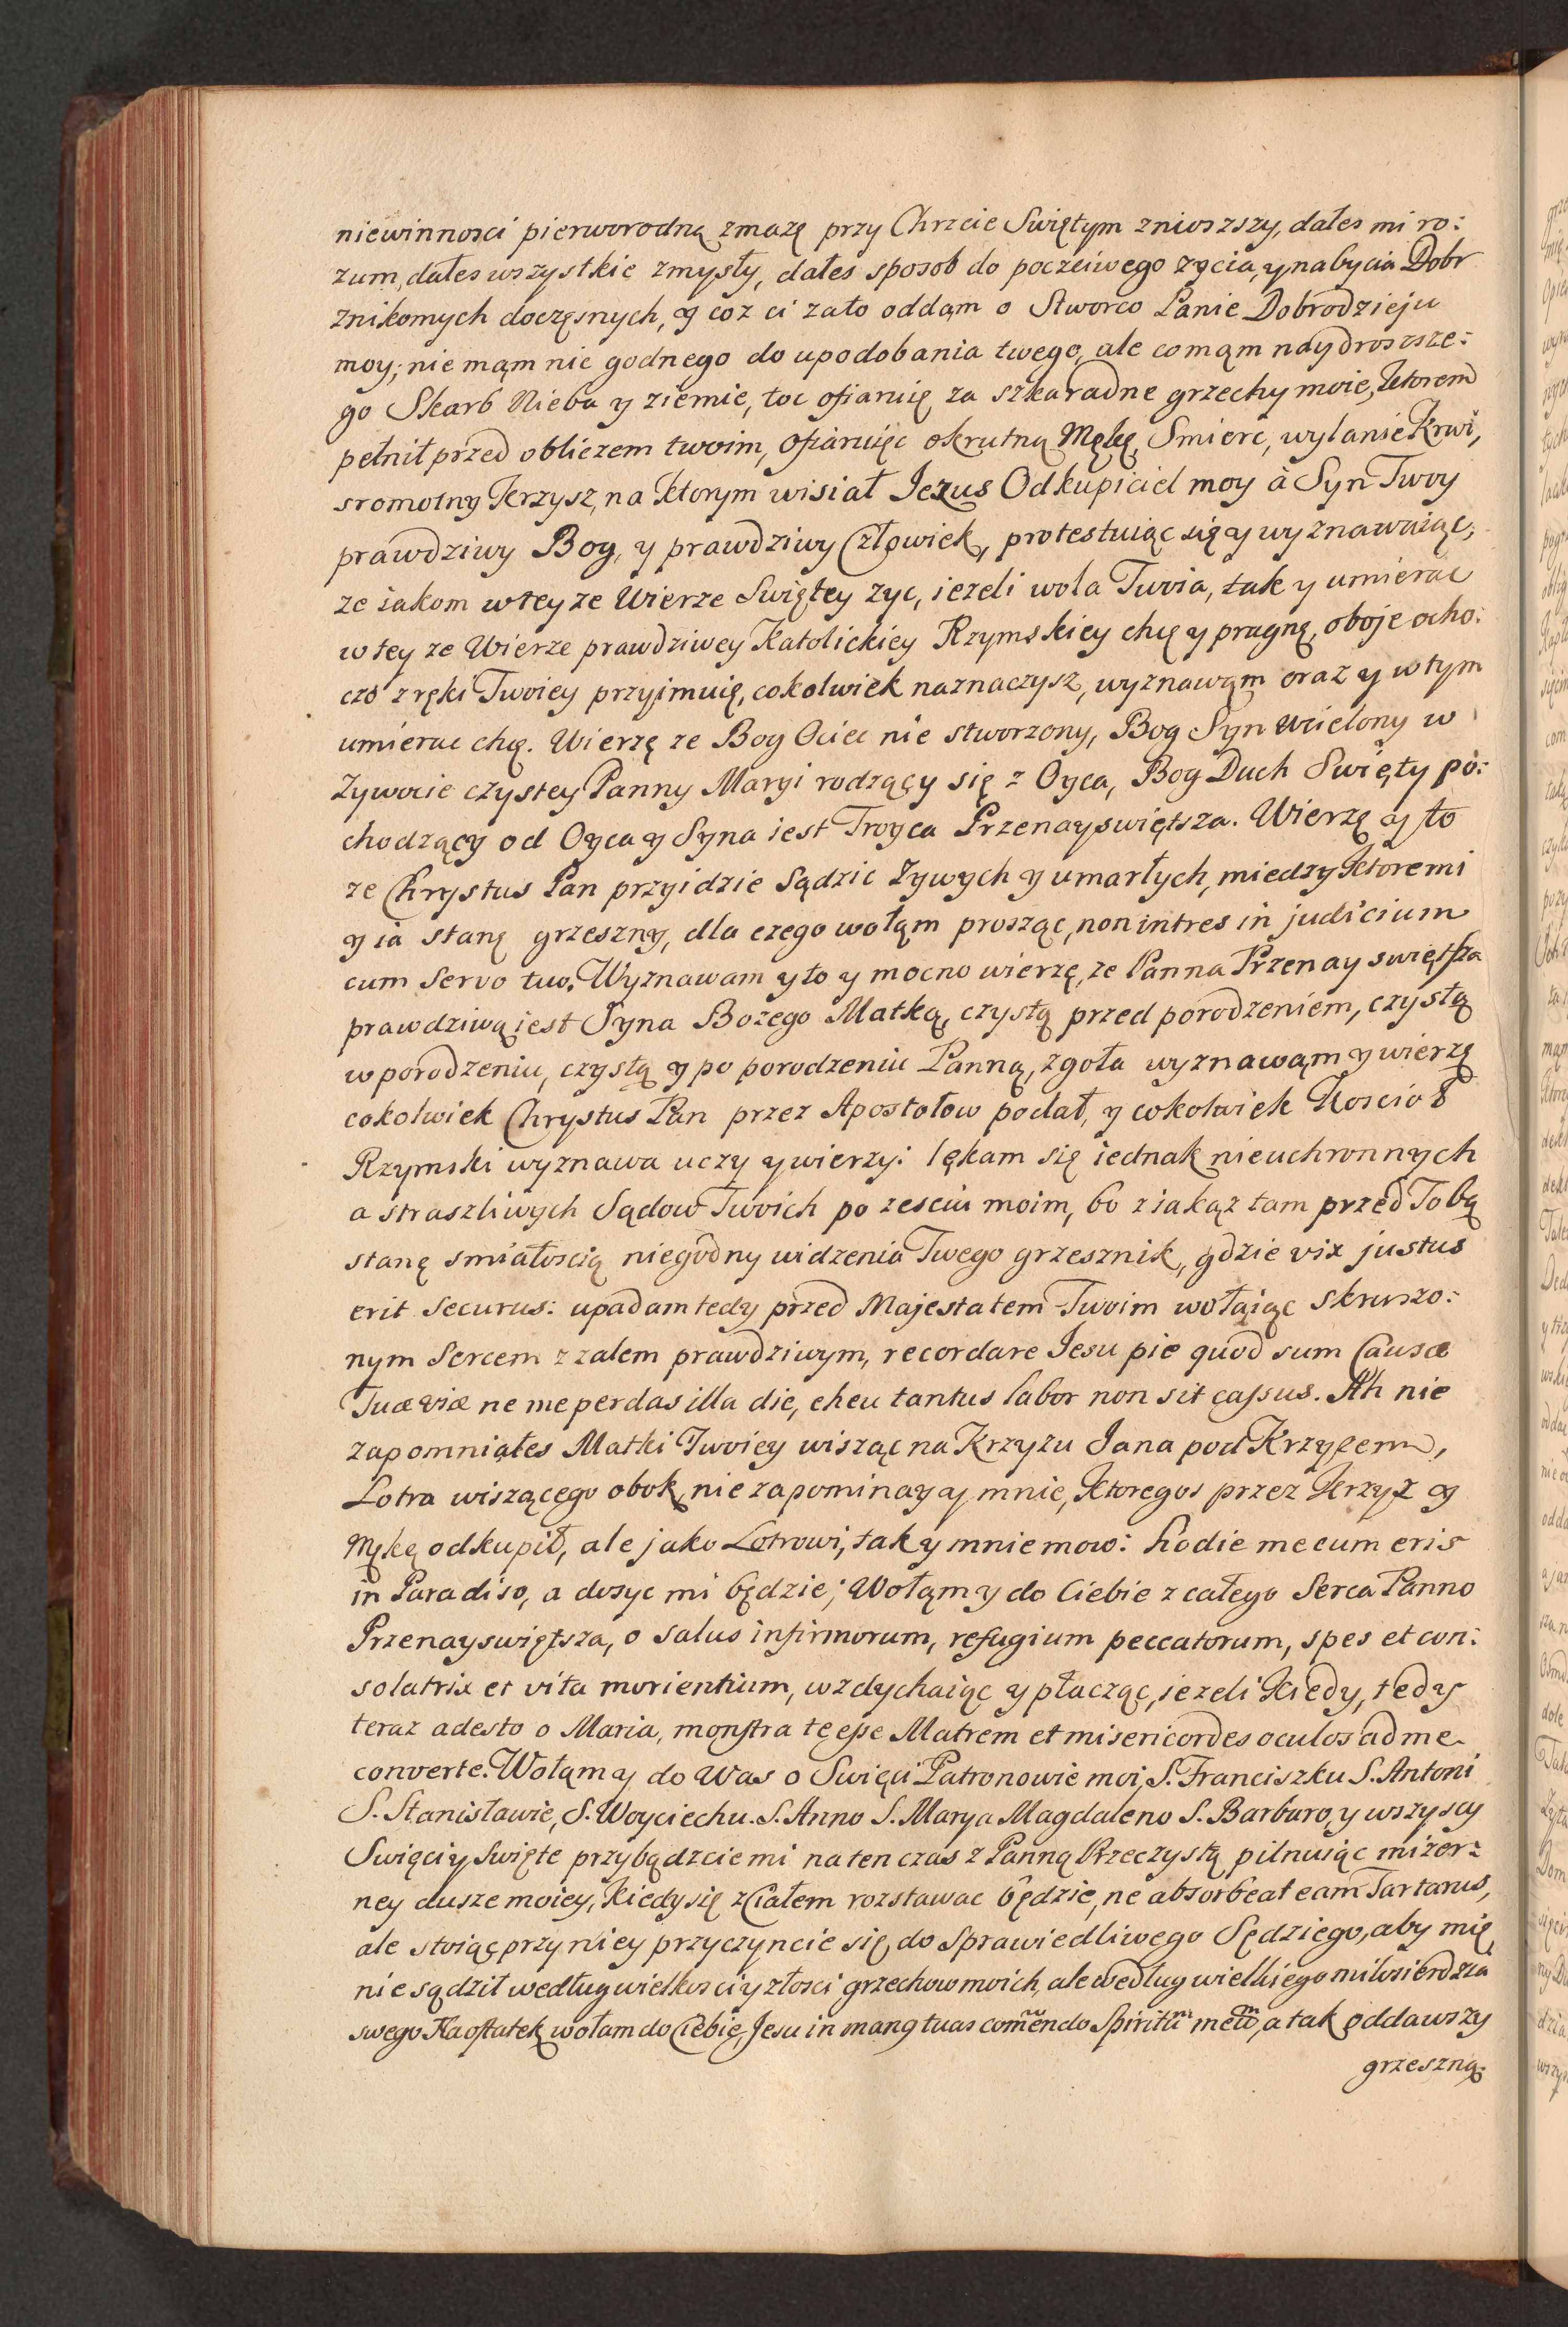 niewinnosci pierworodną zmazę przy Chrzcie Swiętym zniosszy, dałes mi ro:
zum, dałes wszystkie zmysły, dałes sposob do poczciwego zycia, y nabycia Dobr
znikomych doczęsnych, y coz ci zato oddąm o Stworco Panie Dobrodzieju
moy; nie mąm nic godnego do upodobania twego, ale co mąm naydroszsze:
go Skarb Nieba y ziemie, toc ofiaruię za szkaradne grzechy moie, ktorem
pełnił przed obliczem twoim, ofiaruięc okrutną Mękę, Smierc, wylanie Krwi,
sromotny Krzysz, na ktorym wisiał Jezus Odkupiciel moy à Syn Twoy
prawdziwy Bog, y prawdziwy Człowiek, protestuiąc się y wyznawaiąc,
ze iakom w tey ze Wierze Swiętey zyc, iezeli wola Twoia, tak y umierac
w tey ze Wierze prawdziwey Katolickiey Rzymskiey chcę y pragnę, oboje ocho:
czo z ręki Twoiey przyjmuię, cokolwiek naznaczysz, wyznawąm oraz y w tym
umierac chcę. Wierzę ze Bog Ociec nie stworzony, Bog Syn wcielony w
Zywocie czystey Panny Maryi rodzący się z Oyca, Bog Duch Swięty po:
chodzący od Oyca y Syna iest Troyca Przenayswiętsza. Wierzę y to
ze Chrystus Pan przyidzie Sądzic Zywych y umarłych, miedzy ktoremi
y ia stanę grzeszny, dla czego wołąm prosząc, non intres in judicium
cum Servo tuo. Wyznawam y to y mocno wierzę, ze Panna Przenayswiętsza
prawdziwą iest Syna Bozego Matką, czystą przed porodzeniem, czystą
w porodzeniu, czystą y po porodzeniu Panną, zgoła wyznawąm y wierzę
cokolwiek Chrystus Pan przez Apostołow podał, y cokolwiek Koscioł
Rzymski wyznawa uczy y wierzy: lękam się iednak nieuchronnych
a straszliwych Sądow Twoich po zesciu moim, bo z iakąz tam przed Tobą
stanę smiałoscią niegodny widzenia Twego grzesznik, gdzie vix justus
erit Securus: upadam tedy przed Majestatem Twoim wołąiąc skruszo:
nym Sercem z zalem prawdziwym, recordare Jesu pie quod sum Causæ
Tuæ viæ ne me perdas illa die, eheu tantus labor non sit cassus. Ah nie
zapomniąłes Matki Twoiey wisząc na Krzyzu Jana pod Krzyzem,
Lotra wiszącego obok, nie zapominay y mnie, ktoregos przez Krzyz y
Mękę odkupił, ale jako Lotrowi, tak y mnie mow: hodie mecum eris
in Paradiso, a dosyc mi będzie; Wołąm y do Ciebie z całego Serca Panno
Przenayswiętsza, o salus infirmorum, refugium peccatorum, spes et con:
solatrix et vita morientium, wzdychaiąc y płacząc, jezeli kiedy, tedy
teraz adesto o Maria, monstra te esse Matrem et misericordes oculos ad me
converte. Wołąm y do Was o Swięci Patronowie moi, S. Franciszku S. Antoni
S. Stanisławie, S. Woyciechu. S. Anno S. Marya Magdaleno S. Barbaro, y wszyscy
Swięci y Swięte przybądzcie mi na ten czas z Panną Przeczystą pilnuiąc mizer:
ney dusze moiey, kiedy się z Ciałem rozstawac będzie, ne absorbeat eam Tartarus,
ale stoiąc przy niey przyczyncie się do Sprawiedliwego Sędziego, aby mię
nie sądził według wielkosci y złosci grzechow moich, ale według wielkiego miłosierdzia
swego Na ostatek wołam do Ciebie, Jesu in mang tuas com̃endo Spiritũ meũ, a tak oddawszy
grzeszną: